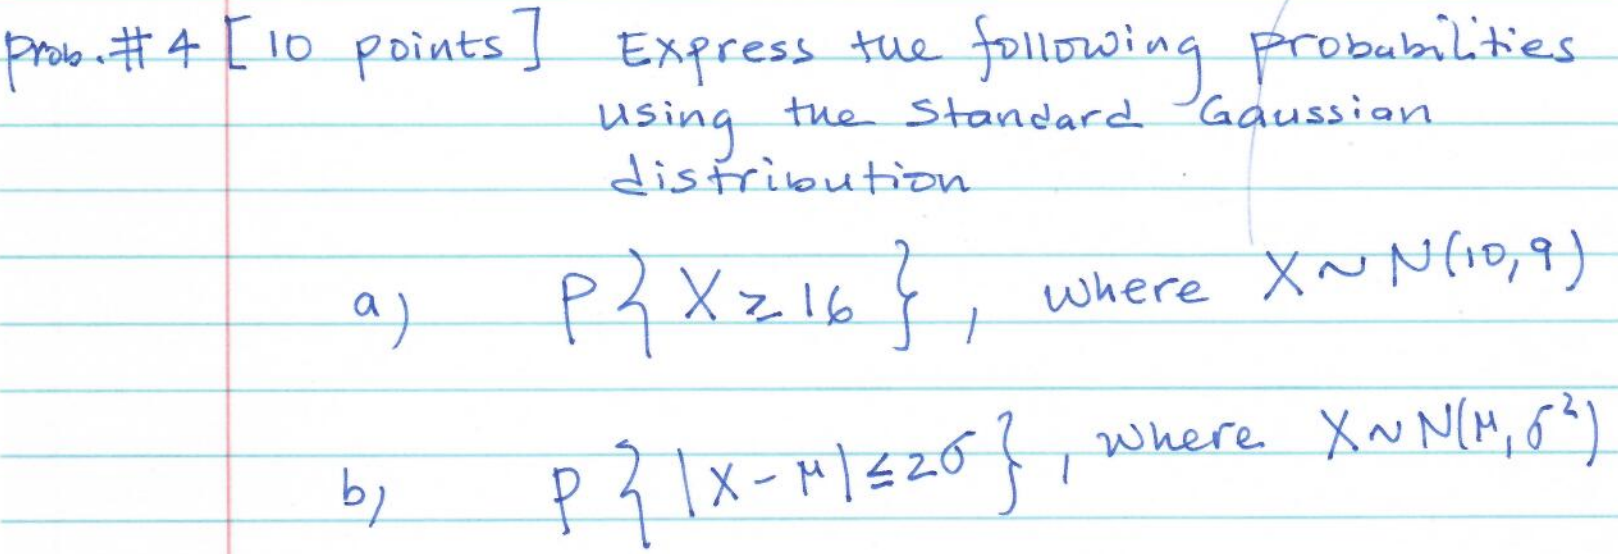 Prob. # 4 [10 points] Express the following probabilities
using the Standard Gaussian
distribution
a) P{X ≥ 16}, where X ~ N(10,9)
b) P{|X-μ| ≤ 2σ}, where X ~ N(μ, σ²)